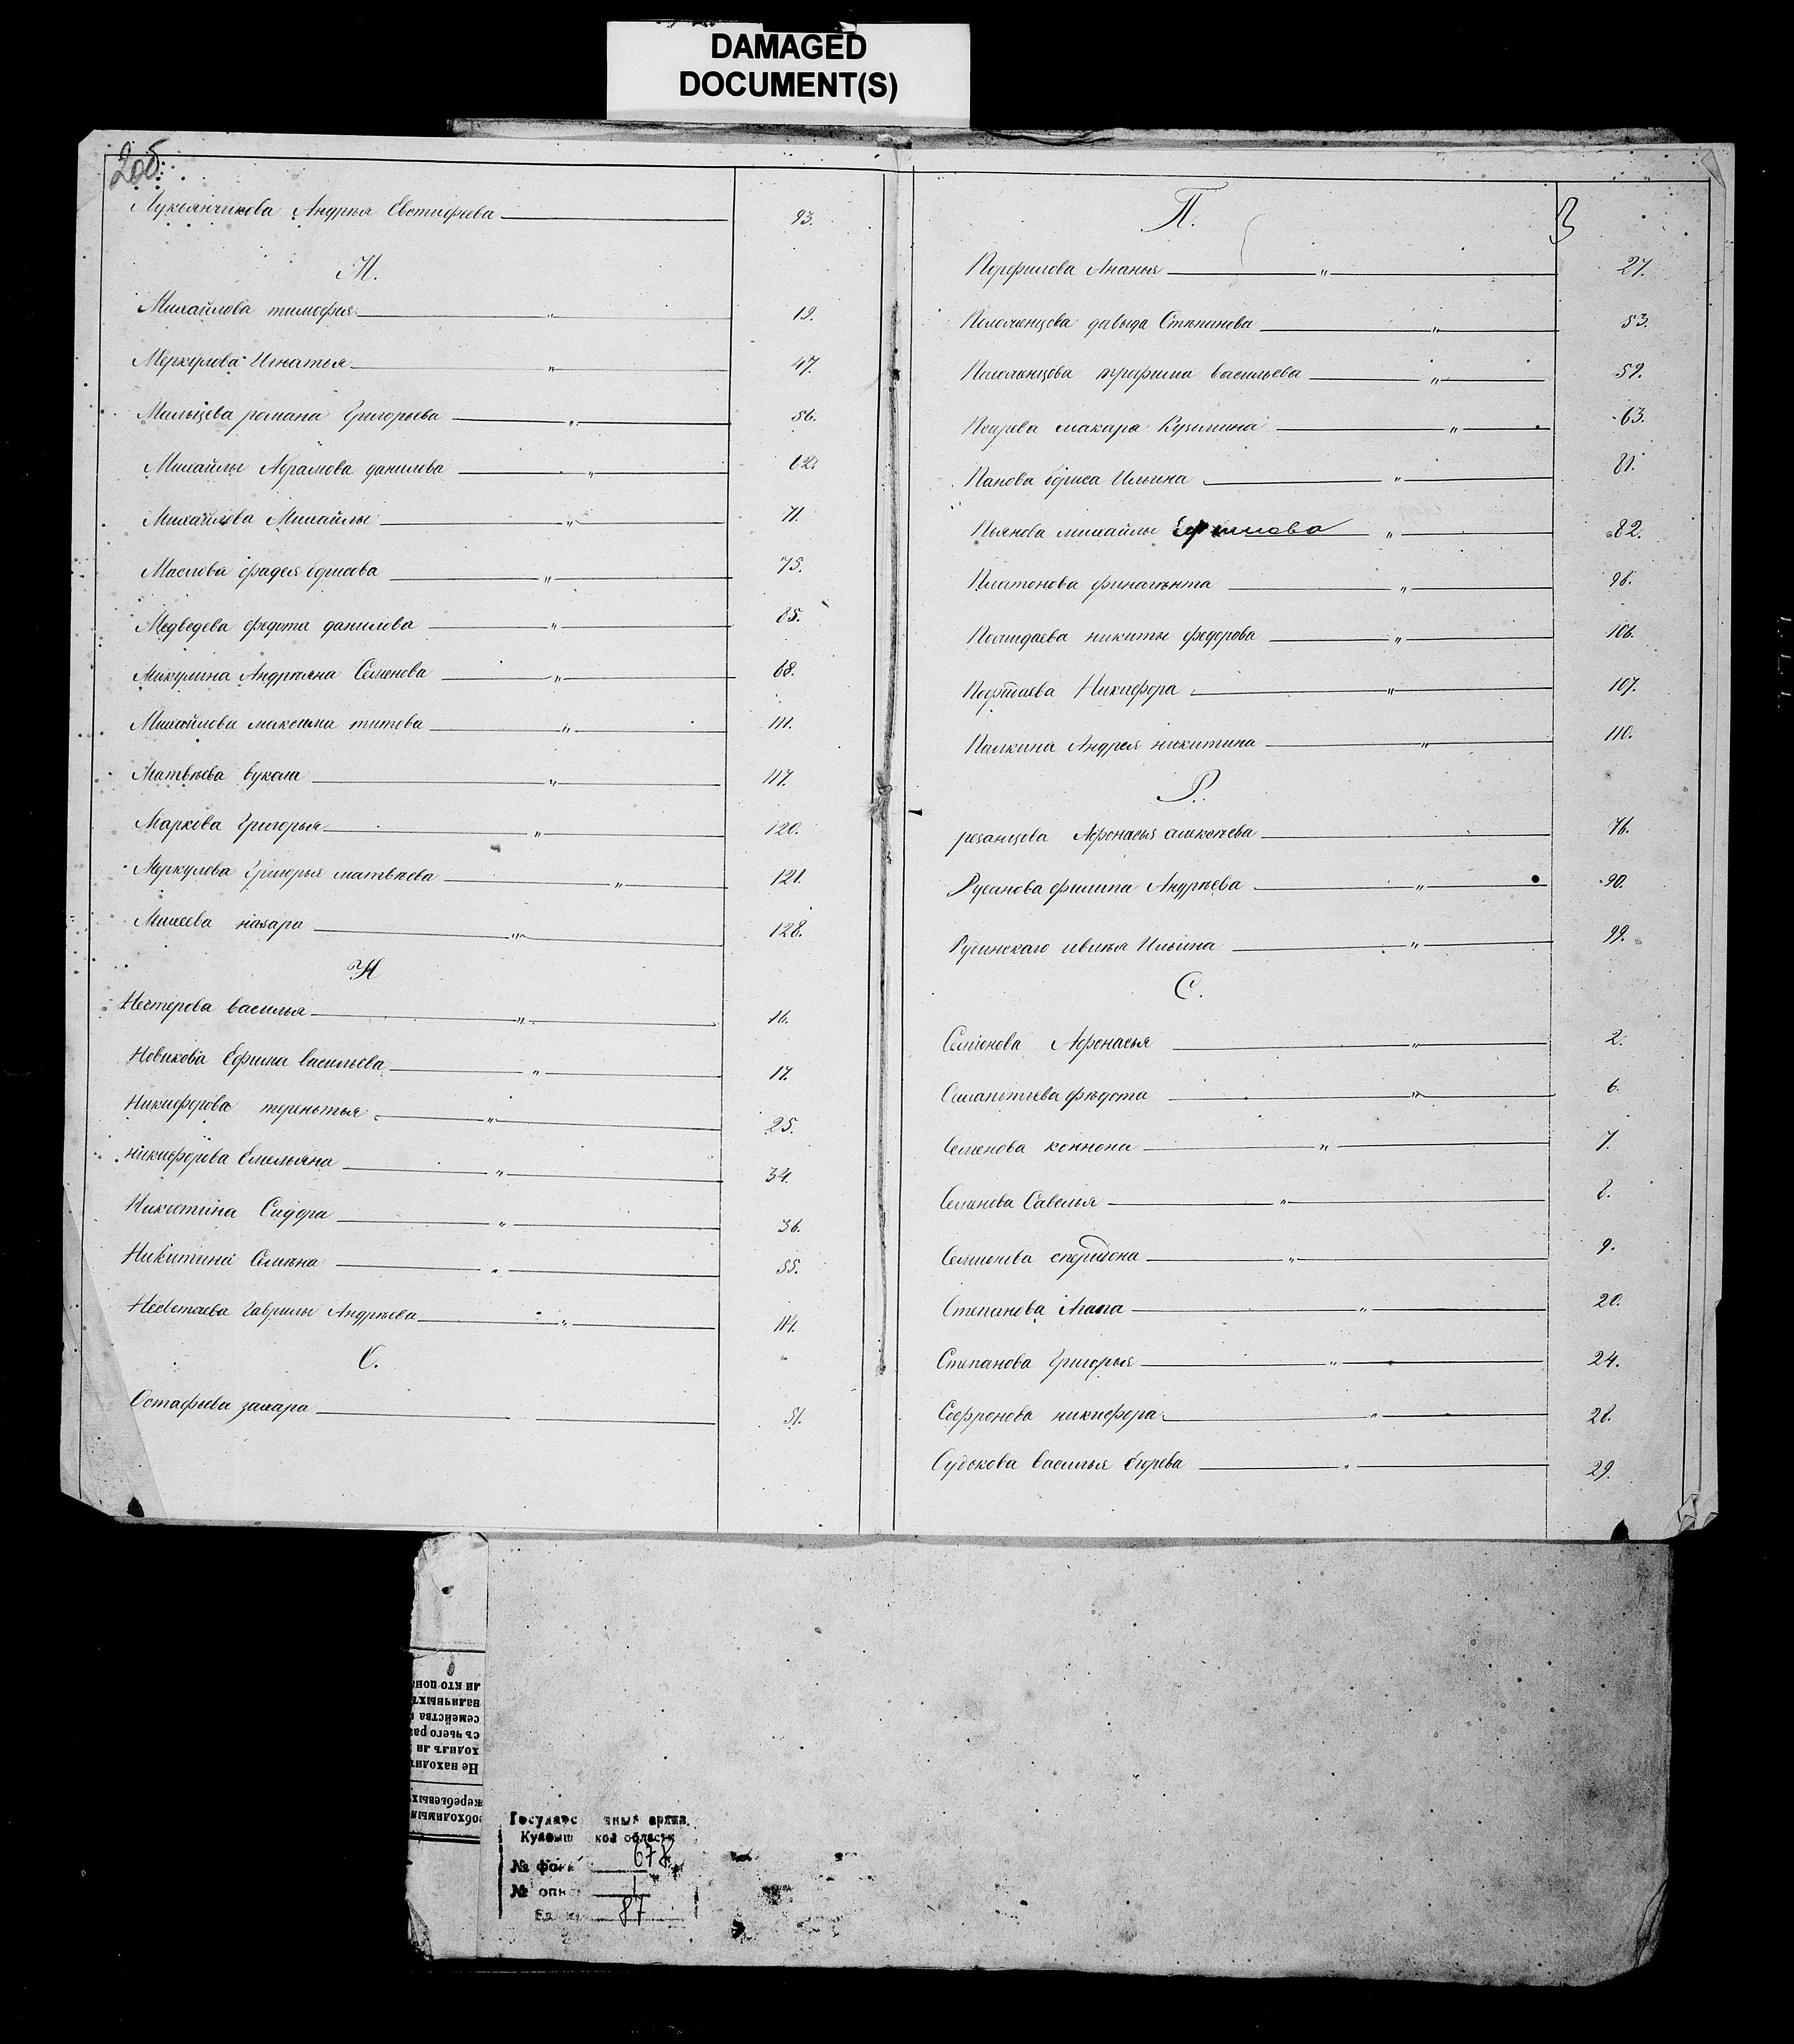 DAMAGED
DOCUMENT(S)
2об.
Лукьянчикова Андрея Евстифеева 93.
М.
Михайлова тимофея " 19.
Меркулова Игнатья " 47.
Мальцева романа Григорьева " 56.
Михайлы Абрамова данилова " 62.
Михайлова Михайлы " 71.
Маслова фадея борисова " 75.
Медведева федота данилова " 85.
Микулина Андрияна Семенова " 68.
Михайлова максима титова " 111.
Матвѣева вукола " 117.
Маркова Григорья " 120.
Меркулова Григорья матвѣева " 121.
назара " 128.
Н
Нестерова василья " 16.
Новикова Ефима васильева " 17.
Никифорова терентья " 25.
никифорова Емельяна " 34.
Никитина Сидора " 36.
Никитина Семѣна " 55.
Несветаева Гаврилы Андрѣева " 114.
О.
Остафьева захара 51.
П.
3
Порфилова Ананья " 27.
давыда Степанова " 53.
трофима васильева " 59.
макара Кузьмина " 63.
Панова бориса Ильина " 81.
Пьянова михайлы Ефимова " 82.
Платонова " 98.
никиты федорова " 106.
Никифора " 107.
Палкина Андрея никитина " 110.
Р.
резанцова Афонасья алексѣева 76.
Русанова филипа Андрѣева " 90.
Ильина " 99.
С.
Семіонова Афонасья " 2.
федота " 6.
Семенова коннона " 7.
Семенова Савелья " 8.
Семионова " 9.
Степанова " 20.
Степанова Григорья " 24.
Софронова никифора " 28.
Судокова василья егорова " 29.
Не находит
ходитъ ли
съ чьего раз
семейства
наличныхъ
ли кто пона
обходимым
жеребьевых
Государственный архив
Куйбышевской области
№ фон 678
№ опи 1
Ед. хр. 87